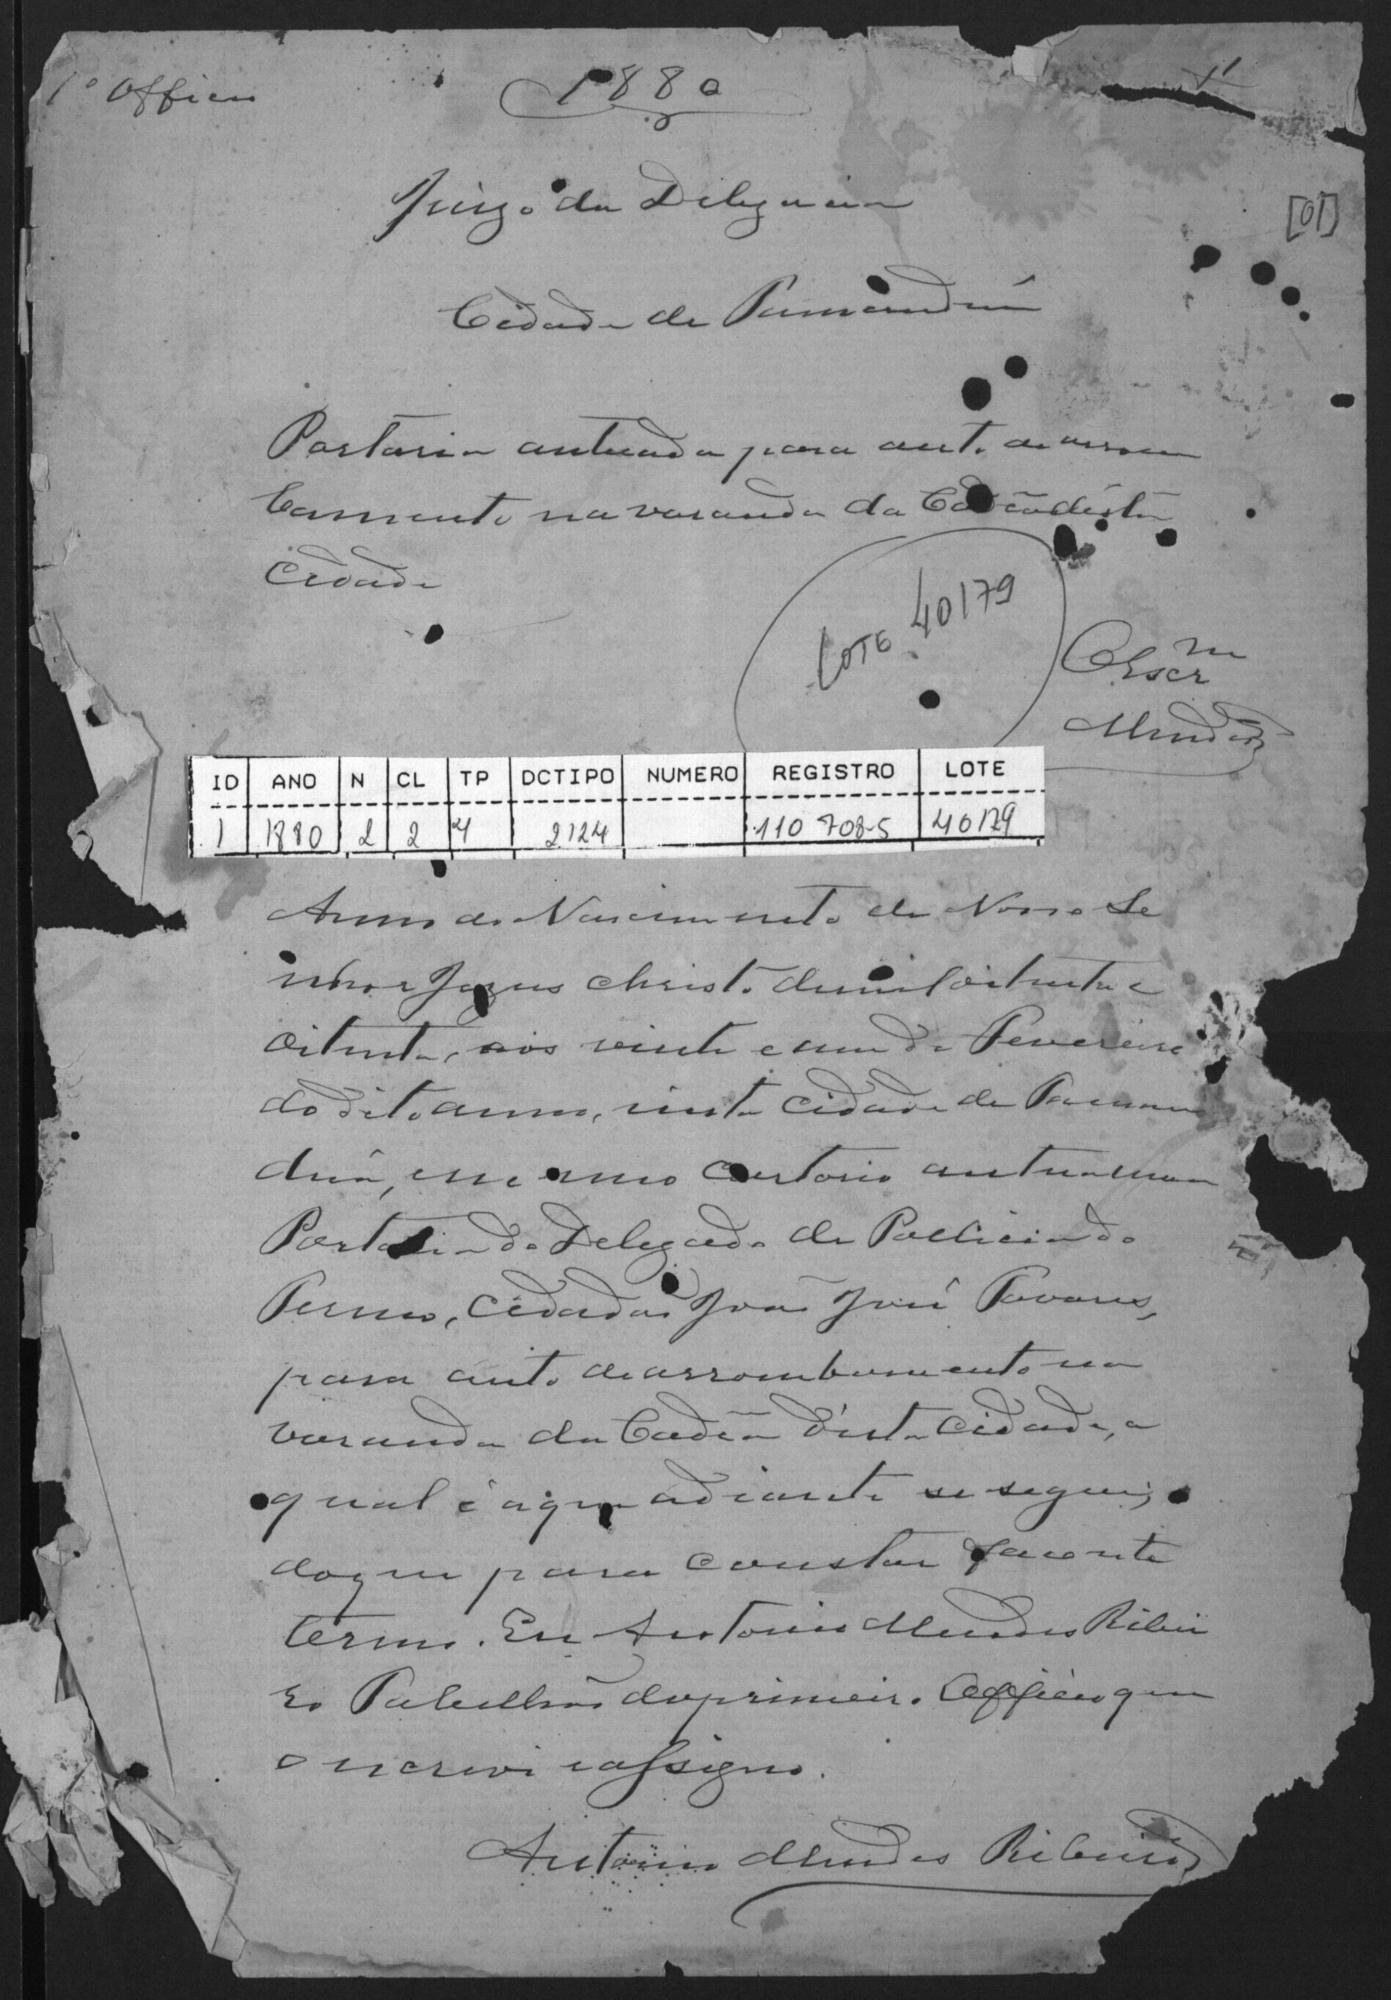 1º Officio
1880
Juizo da Delegacia
[01]
Cidade de Tamanduá
Portaria autuada para auto de arrom
bamento na varanda da Cadêa desta
Cidade
LOTE 40179
O Escr.m
Mendes
ID ANO N CL TP DCTIPO NUMERO REGISTRO LOTE
1 1880 2 2 4 2124 110 708-5 40179
Anno do Nascimento de Nosso Se
nhor Jezus Christo de mil oitocentos e
oitenta, aos vinte e um de Fevereiro
do dito anno, nesta cidade de Taman
duá, em o meo cartorio autuo uma
Portaria do Delegado de Policia do
Termo, cidadão João José Tavares,
para auto de arrombamento na
varanda da Cadêa d'esta cidade, a
qual é a que adiante se segue;
do que para constar faço este
termo. Eu Antonio Mendes Ribei
ro Tabellião do primeiro Officio que
o escrevi e assigno.
Antonio Mendes Ribeiro